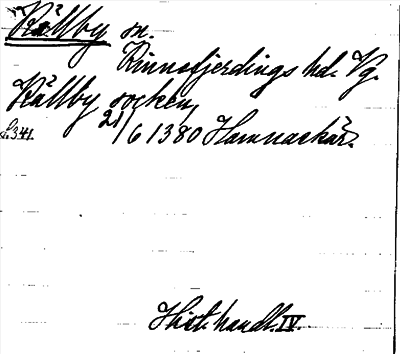 Källby sn.
Kinnefjerdings hd. Vg.
Källby socken,
s. 341. 21/6 1380 Hamnaskär.
Hist. handl. IV.